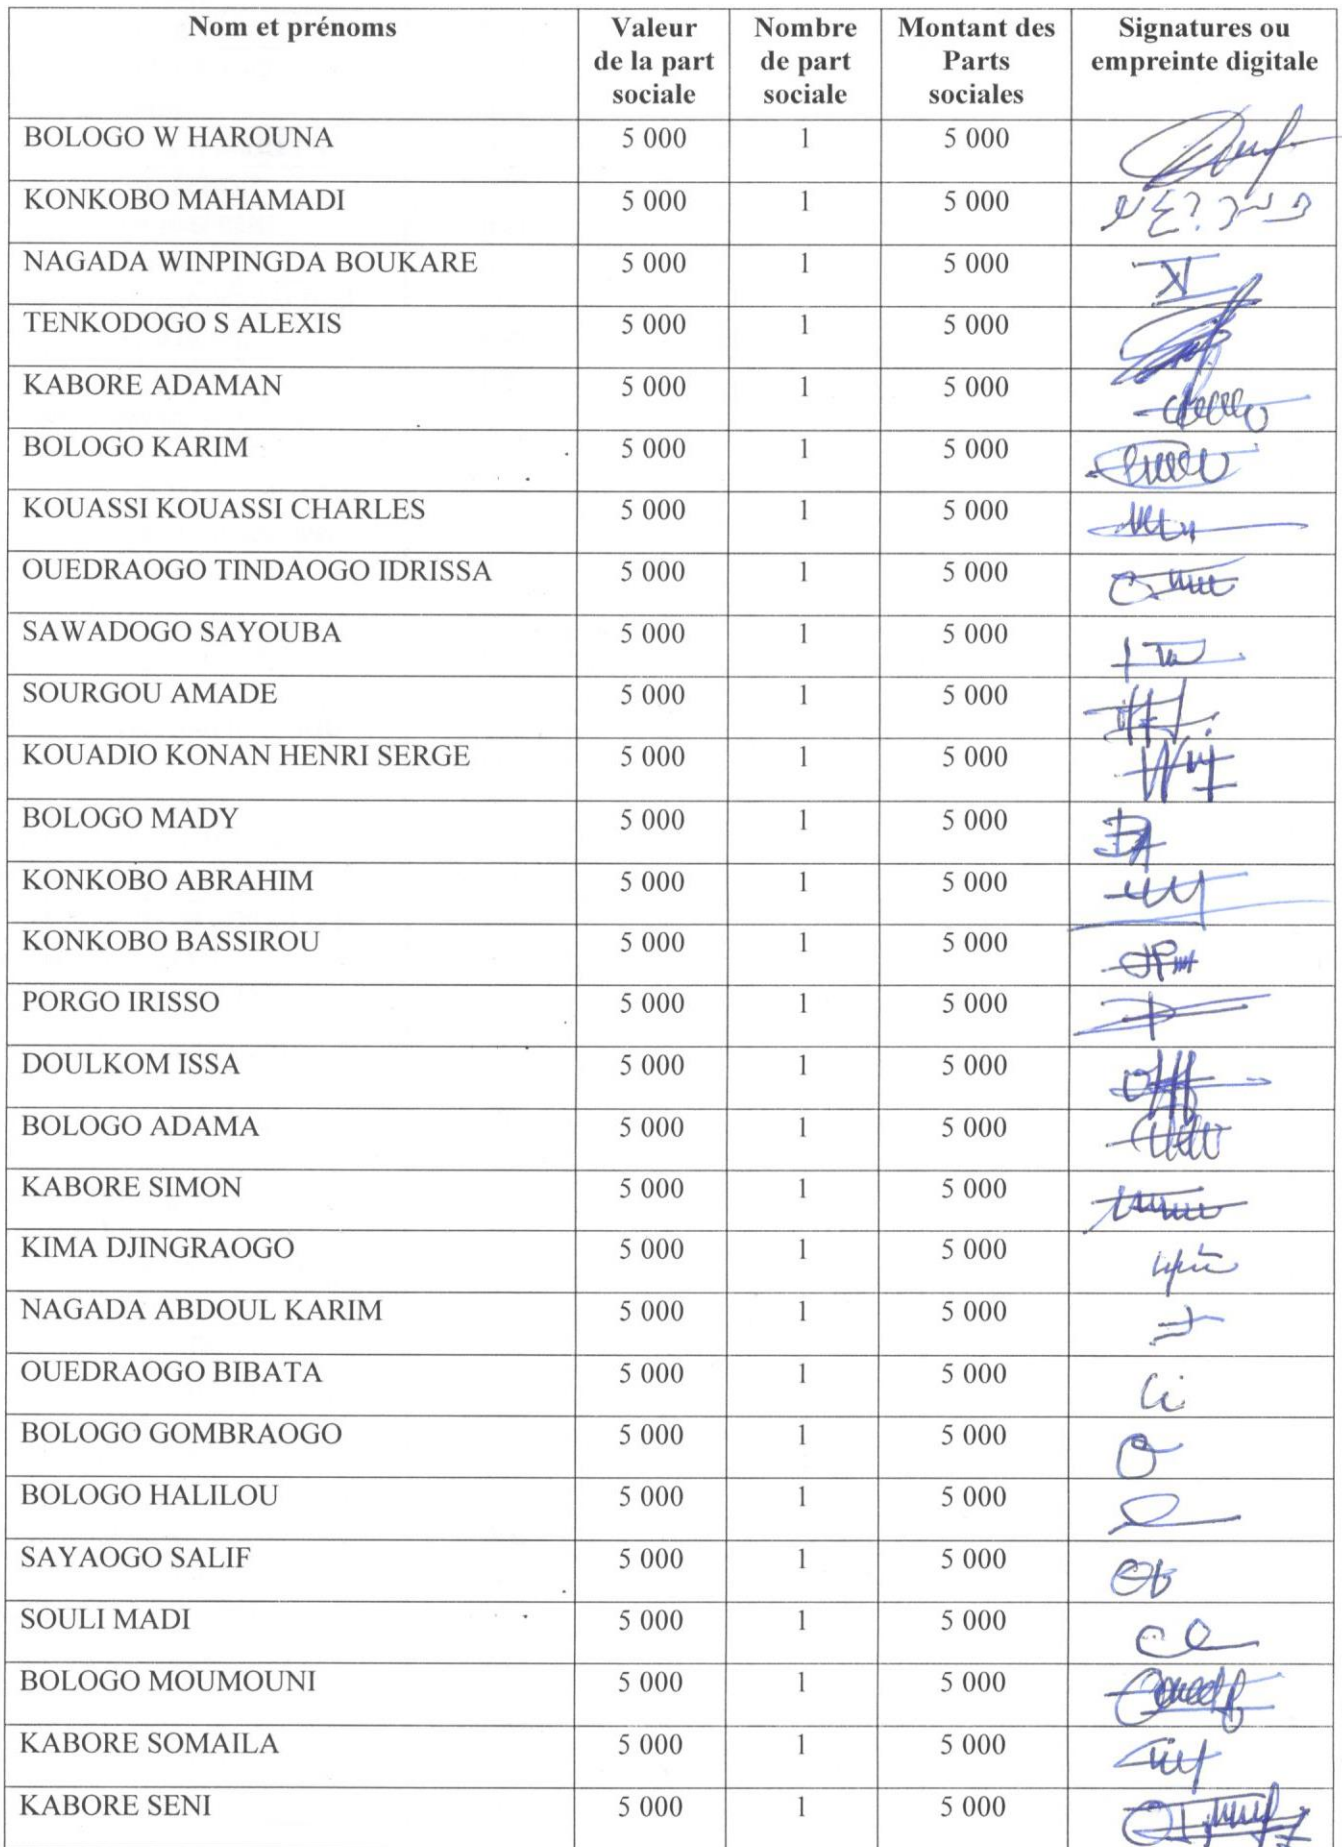 Nom et prénoms Valeur de la part sociale Nombre de part sociale Montant des Parts sociales Signatures ou empreinte digitale
BOLOGO W HAROUNA 5 000 1 5 000
KONKOBO MAHAMADI 5 000 1 5 000
NAGADA WINPINGDA BOUKARE 5 000 1 5 000
TENKODOGO S ALEXIS 5 000 1 5 000
KABORE ADAMAN 5 000 1 5 000
BOLOGO KARIM 5 000 1 5 000
KOUASSI KOUASSI CHARLES 5 000 1 5 000
OUEDRAOGO TINDAOGO IDRISSA 5 000 1 5 000
SAWADOGO SAYOUBA 5 000 1 5 000
SOURGOU AMADE 5 000 1 5 000
KOUADIO KONAN HENRI SERGE 5 000 1 5 000
BOLOGO MADY 5 000 1 5 000
KONKOBO ABRAHIM 5 000 1 5 000
KONKOBO BASSIROU 5 000 1 5 000
PORGO IRISSO 5 000 1 5 000
DOULKOM ISSA 5 000 1 5 000
BOLOGO ADAMA 5 000 1 5 000
KABORE SIMON 5 000 1 5 000
KIMA DJINGRAOGO 5 000 1 5 000
NAGADA ABDOUL KARIM 5 000 1 5 000
OUEDRAOGO BIBATA 5 000 1 5 000
BOLOGO GOMBRAOGO 5 000 1 5 000
BOLOGO HALILOU 5 000 1 5 000
SAYAOGO SALIF 5 000 1 5 000
SOULI MADI 5 000 1 5 000
BOLOGO MOUMOUNI 5 000 1 5 000
KABORE SOMAILA 5 000 1 5 000
KABORE SENI 5 000 1 5 000